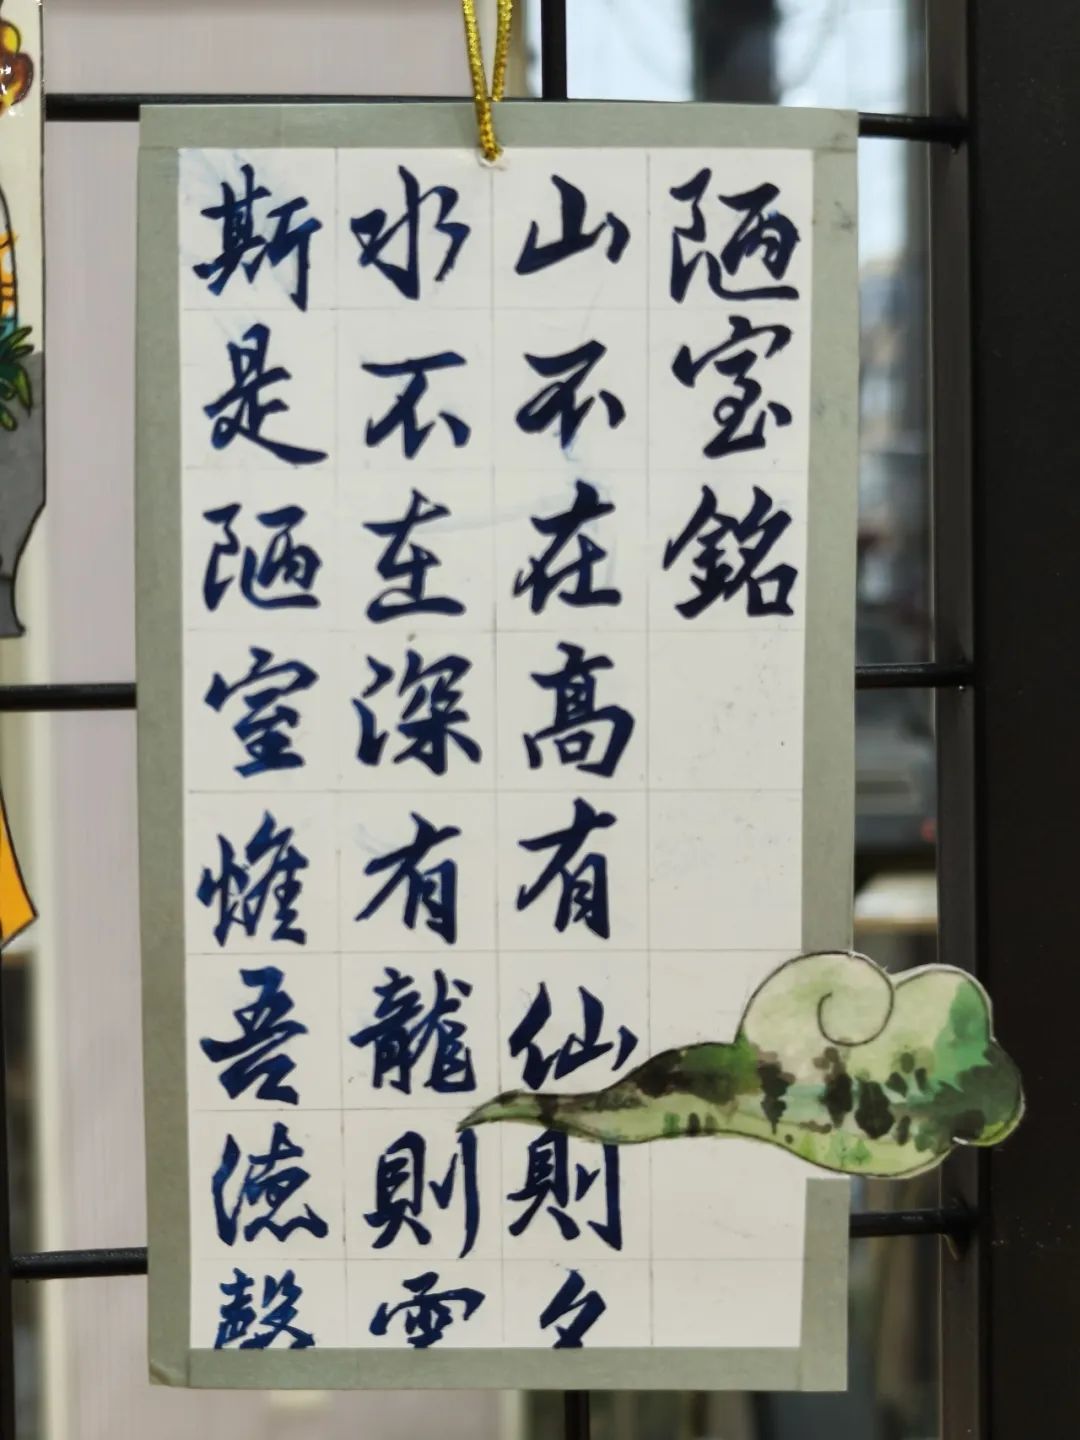 陋室銘
山不在高有仙則
水不在深有龍則
斯是陋室惟吾德